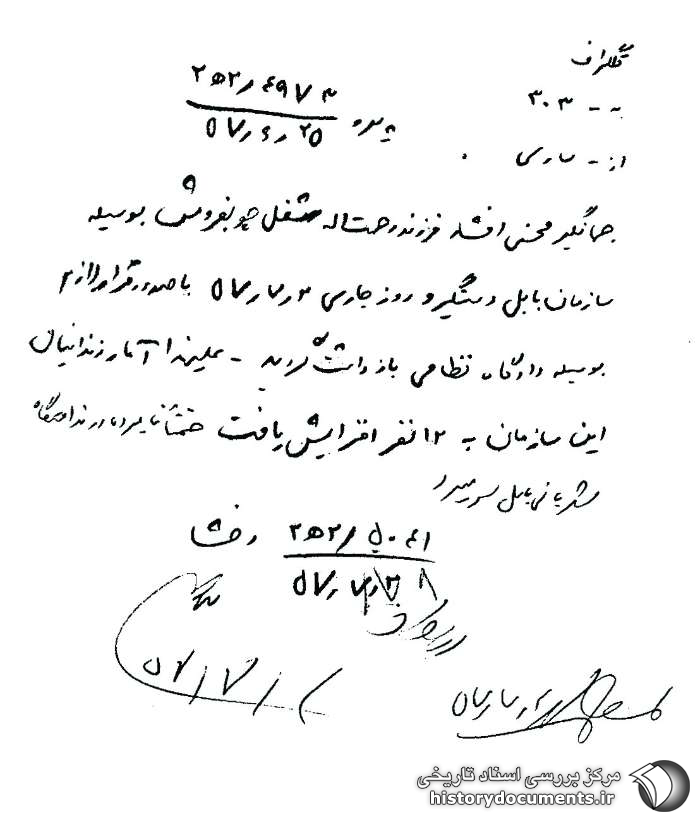 تلگراف
به - ۳۰۳
از - ساری
پیرو ۴۹۷۳/ ۲ھ۲
۲۵ر۶ر۵۷
جهانگیر محسنی افشار فرزند رحمت‌اله شغل چوبفروش بوسیله
سازمان بابل دستگیر و روز جاری ۲ر۷ر۵۷ با صدور قرار
بوسیله دادگاه نظامی بازداشت گردید - علیهذا آمار زندانیان
این سازمان به ۱۲ نفر افزایش یافت ضمناً نامبرده در ندامتگاه
شهربانی بابل بسر میبرد
۵۰۴۱/ ۲ھ۲
۵۷
۵۷/۷/
مرکز بررسی اسناد تاریخی
historydocuments.ir